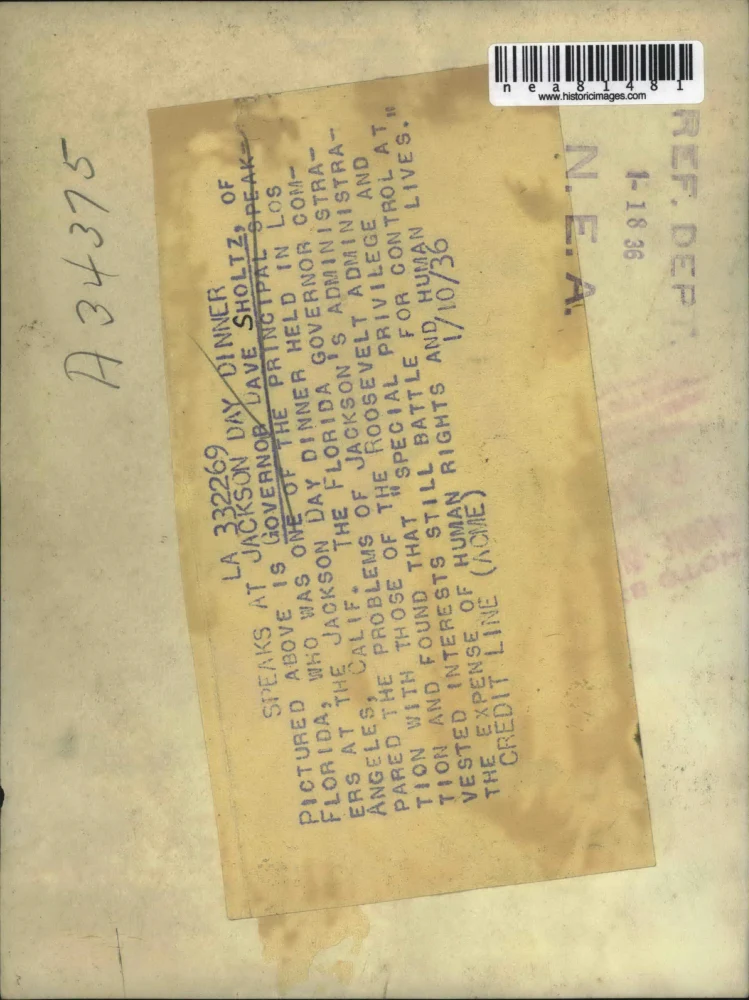 nea81481
www.historicimages.com
REF. DEP
1-18 36
N.E.A.
A 34375
LA 332269
SPEAKS AT JACKSON DAY DINNER
PICTURED ABOVE IS GOVERNOR DAVE SHOLTZ, OF
FLORIDA, WHO WAS ONE OF THE PRINCIPAL SPEAK-
ERS AT THE JACKSON DAY DINNER HELD IN LOS
ANGELES, CALIF. THE FLORIDA GOVERNOR COM-
PARED THE PROBLEMS OF JACKSON'S ADMINISTRA-
TION WITH THOSE OF THE ROOSEVELT ADMINISTRA-
TION AND FOUND THAT "SPECIAL PRIVILEGE AND
VESTED INTERESTS STILL BATTLE FOR CONTROL AT
THE EXPENSE OF HUMAN RIGHTS AND HUMAN LIVES."
CREDIT LINE (ACME) 1/10/36